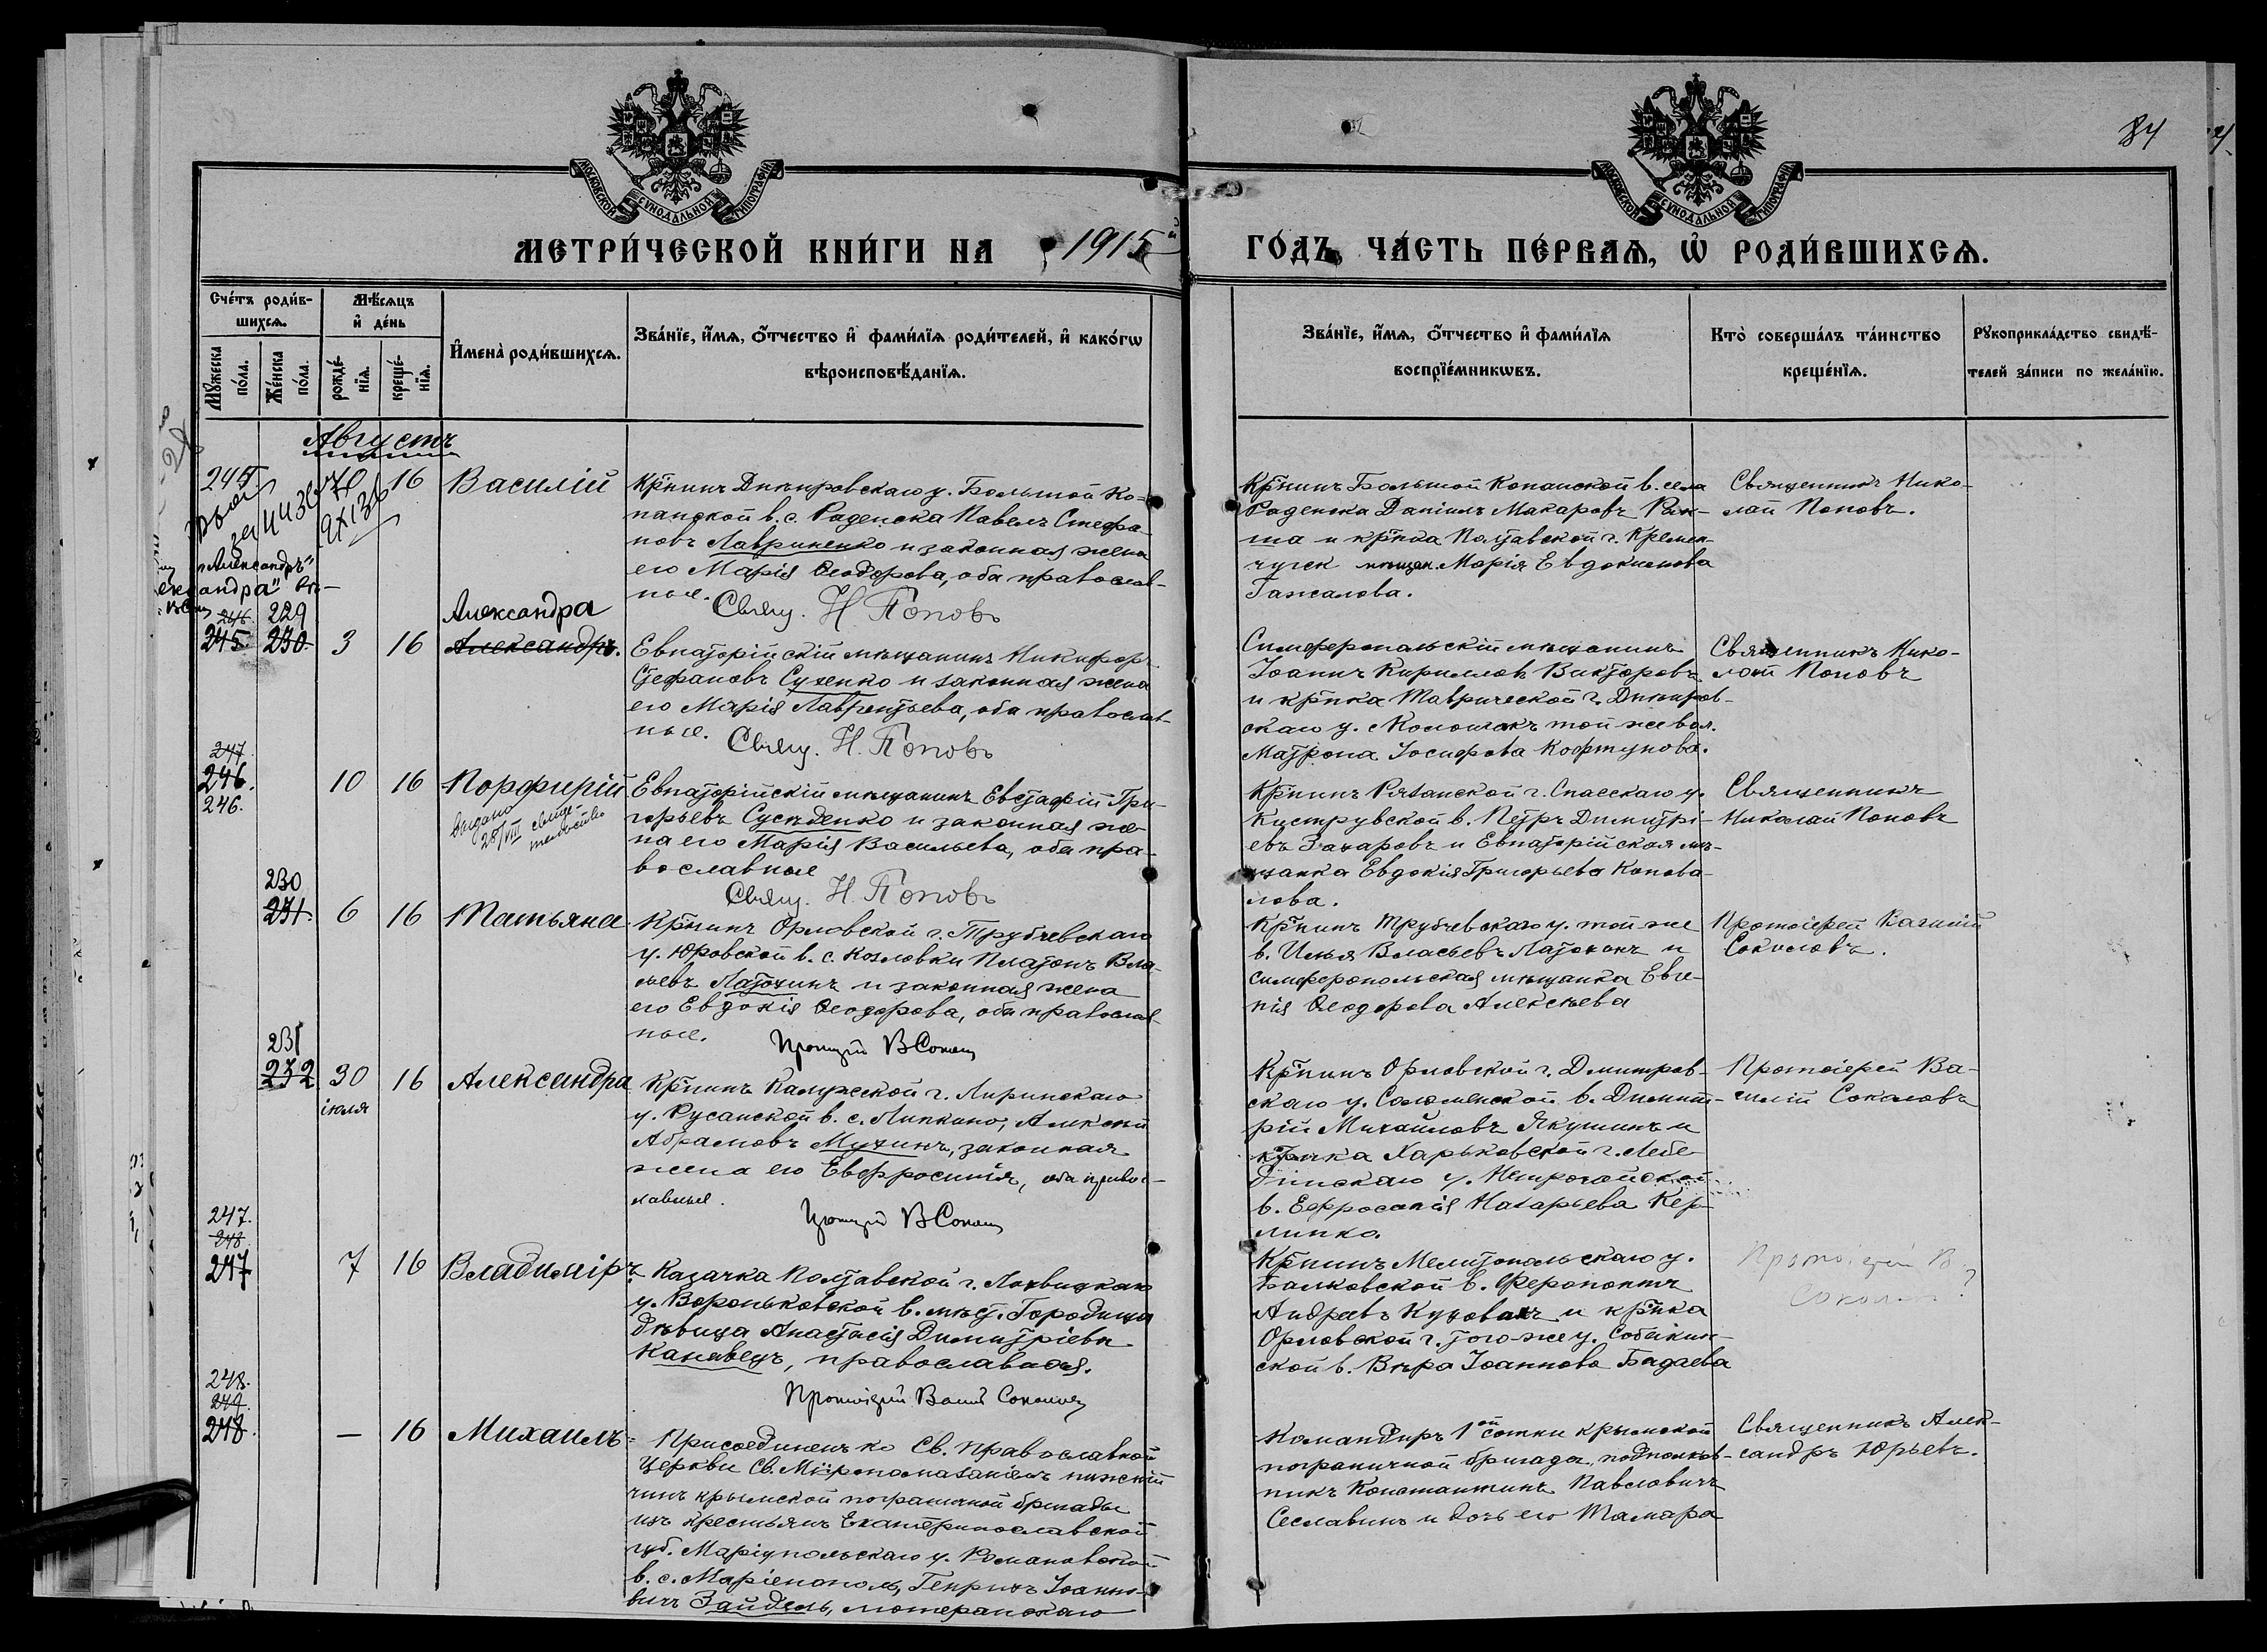 84
МОСКОВСКОЙ СѴНОДАЛЬНОЙ ТИПОГРАФІИ
МОСКОВСКОЙ СѴНОДАЛЬНОЙ ТИПОГРАФІИ
МЕТРИ́ЧЕСКОЙ КНИ́ГИ НА 1915й ГО́ДЪ, ЧА́СТЬ ПЕ́РВАѦ, Ѡ҆ РОДИ́ВШИХСѦ.
Сче́тъ роди́в-
шихсѧ.
Мꙋ́жеска по́ла.
Же́нска по́ла.
Мѣ́сѧцъ
и҆ де́нь
рожде́-
нїѧ.
креще́-
нїѧ.
И҆мена̀ роди́вшихсѧ.
Зва́нїе, и҆́мѧ, ѻ҆́тчество и҆ фами́лїѧ роди́телей, и҆ како́гѡ
вѣроисповѣ́данїѧ.
Зва́нїе, и҆́мѧ, ѻ҆́тчество и҆ фами́лїѧ
воспрїе́мникѡвъ.
Кто̀ соверша́лъ та́инство
креще́нїѧ.
Рꙋкоприкла́дство свидѣ́-
телей за́писи по жела́нїю.
Августъ
16 Василій
Кр̃нинъ Днѣпровскаго у. Большой Ко-
панской в. с. Раденска Павелъ Стефа-
новъ Лавриненко и законная жена
его Марія Ѳеодорова, оба православ-
ные.
Свящ. Н. Поповъ
Кр̃нинъ Большой Копанской в. села
Раденска Даніилъ Макаровъ Рак-
ша и кр̃нка Полтавской г. Кремен-
чугск мѣщан. Марія Евдокимова
Гажалова.
Священникъ Нико-
лай Поповъ.
„Александръ"
246. 229
245 230. 3 16 Александра
Александръ.
Евпаторійскій мѣщанинъ Никифоръ
Стефановъ Сухенко и законная жена
его Марія Лаврентьева, оба православ-
ные.
Свящ. Н. Поповъ
Симферопольскій мѣщанинъ
Іоаннъ Кирилловъ Викторовъ
и кр̃нка Таврической г. Днѣпров-
скаго у. с. Коломакъ той же вол.
Матрона Іосифова Кофтунова.
Священникъ Нико-
лай Поповъ
247.
246. 10 16 Порфирій
246.
выдано
28/VIII свидѣ-
тельство
Евпаторійскій мѣщанинъ Евстафій Гри-
горьевъ Сусѣденко и законная же-
на его Марія Васильева, оба пра-
вославные
Свящ. Н. Поповъ
Кр̃нинъ Рязанской г. Спасскаго у.
Киструвской в. Петръ Димитрі-
евъ Захаровъ и Евпаторійская мѣ-
щанка Евдокія Григорьева Конова-
лова.
Священникъ
Николай Поповъ
230
231. 6 16 Татьяна
Кр̃нинъ Орловской г. Трубчевскаго
у. Юровской в. с. Козловки Платонъ Вла-
сьевъ Латохинъ и законная жена
его Евдокія Ѳеодорова, оба православ-
ные.
Кр̃нинъ Трубчевскаго у. той же
в. Илья Власьевъ Латохинъ и
симферопольская мѣщанка Евге-
нія Ѳеодорова Алексѣева
Протоіерей Василій
Соколовъ.
231
232 30 16 Александра
іюля
Кр̃нинъ Калужской г. Лихвинскаго
у. Русановской в. с. Липкино, Алексѣй
Абрамовъ Мухинъ, законная
жена его Евфросинія, оба правос-
лавные.
Кр̃нинъ Орловской г. Дмитров-
скаго у. Соломенской в. Димит-
рій Михайловъ Якушинъ и
кр̃нка Харьковской г. Лебе-
динскаго у.
в. Ефросинія Назарьева Кер-
линко.
Протоіерей Ва-
силій Соколовъ
247.
248
247 7 16 Владиміръ
Казачка Полтавской г. Лохвицкаго
у. Вороньковской в. мѣст. Городища
дѣвица Анастасія Димитріева
Канивецъ, православная.
Кр̃нинъ Мелитопольскаго у.
Балковской в. Ферапонтъ
Андреевъ Кузовинъ и кр̃нка
Орловской г. того-же у. Собакин-
ской в. Вѣра Іоаннова Бадаева
Протоіерей В
Соколовъ?
248.
249.
248. — 16 Михаилъ
Присоединенъ ко Св. Православной
Церкви Св. Мѵропомазаніемъ нижній
чинъ крымской пограничной бригады
изъ крестьянъ Екатеринославской
губ. Маріупольскаго у. Романовской
в. с. Маріенополь, Генрихъ Іоанно-
вичъ Зайдель, лютеранскаго
Командиръ 1ой сотни крымской
пограничной бригады, подполков-
никъ Константинъ Павловичъ
Сеславинъ и дочь его Тамара
Священникъ Алек-
сандръ Юрьевъ.